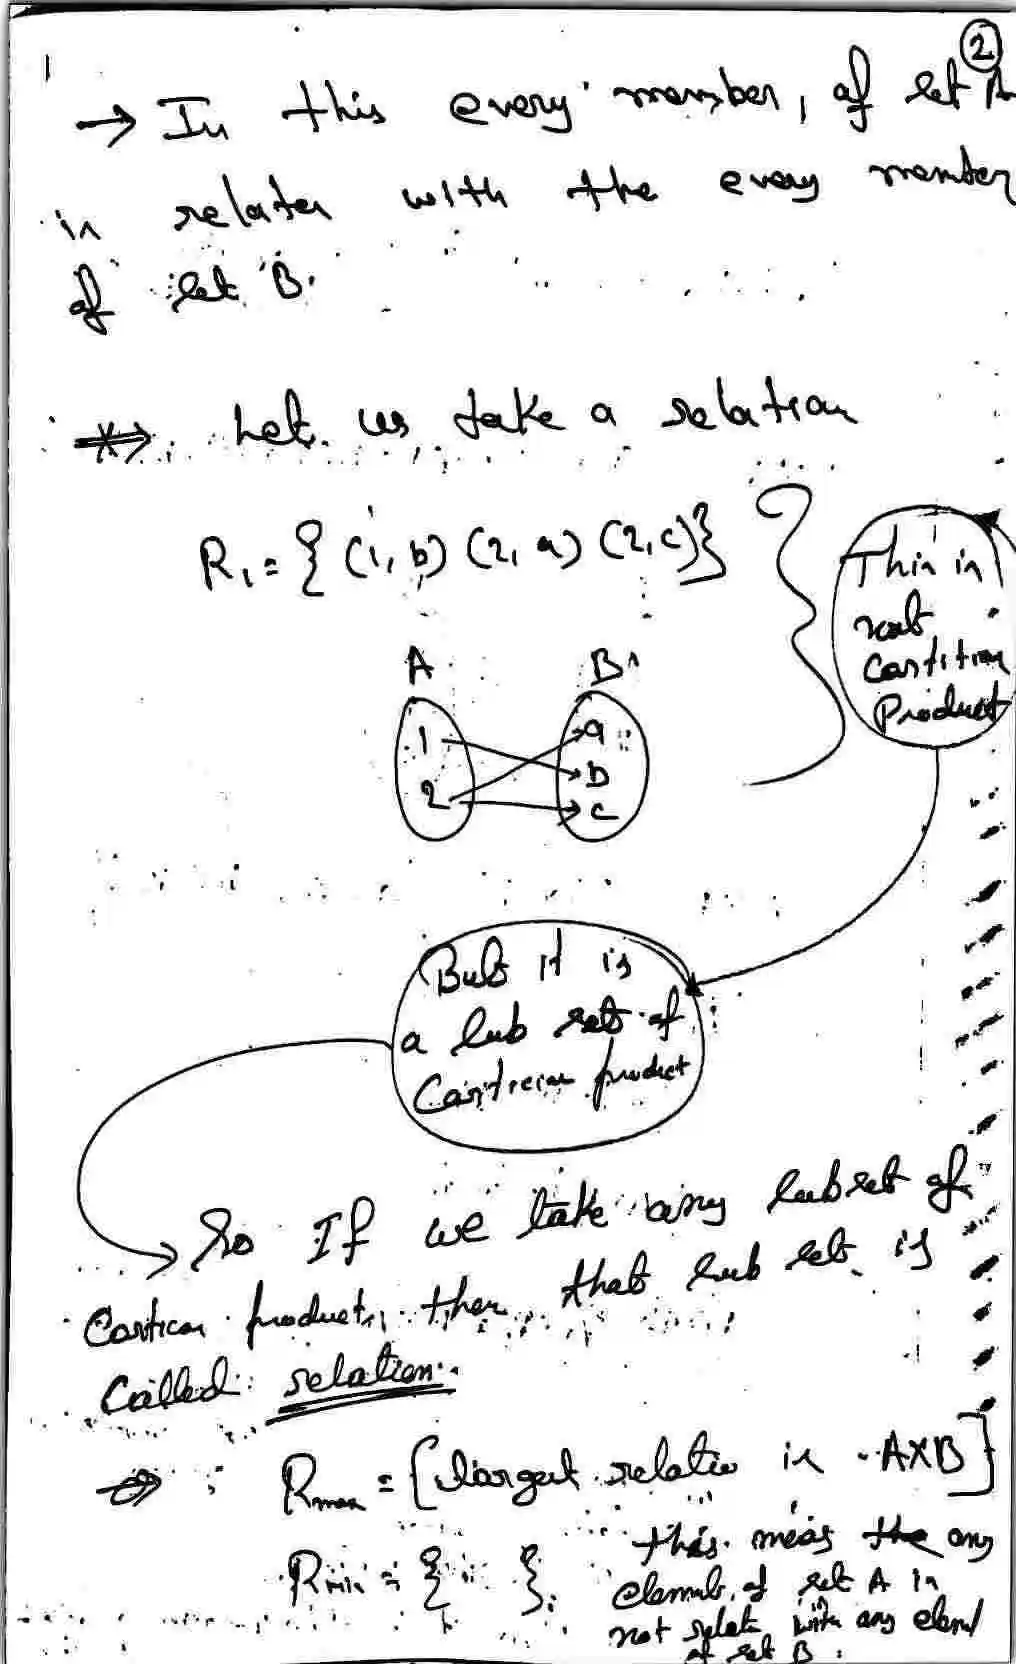 2
→ In this every member, of set A
is relater with the every member
of set B.
Let us take a relation
R₁ = { (1, b) (2, a) (2, c)}
This is
not
Cartitian
Product
A B
1 a
2 b
c
But it is
a sub set of
Carticián product
So If we take any subset of
Cartican product, then that sub set is
Called relation.
Rmax = {largest relatio is A×B}
Rmin = { }. this meas the any
elemnt of set A is
not relate with any elend
of set B.